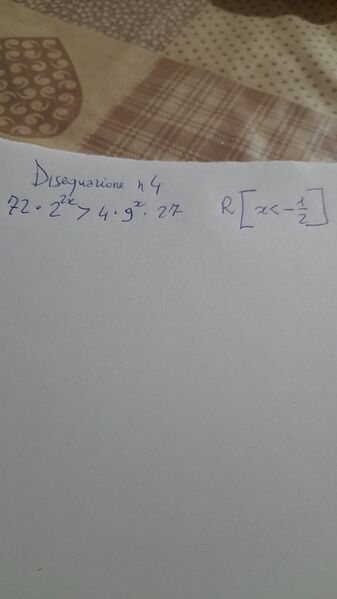 Disequazione n 4
72 · 2^{2x} > 4 · 9^x · 27 R [x < -1/2]